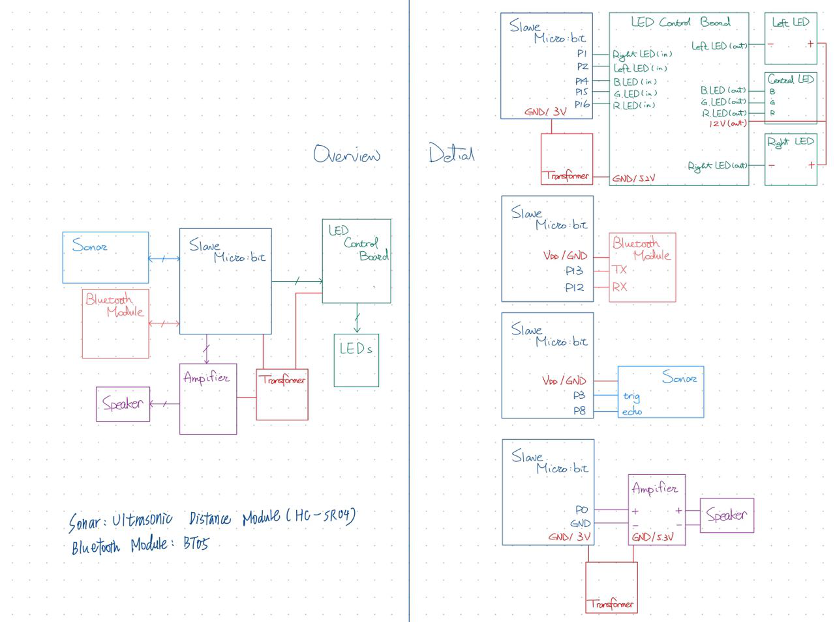 Overview
Sonar
Slave
Micro:bit
LED
Control
Board
Bluetooth
Module
LEDs
Ampifier
Transformer
Speaker
Sonar: Ultrasonic Distance Module (HC-SR04)
Bluetooth Module: BT05
Detial
Slave
Micro:bit
P1
P2
P14
P15
P16
GND/3V
Transformer
LED Control Board
Right LED(in)
Left LED(in)
B LED(in)
G LED(in)
R LED(in)
GND/5.2V
Left LED(out)
B LED(out)
G LED(out)
R LED(out)
12V(out)
Right LED(out)
Left LED
- +
Central LED
B
G
R
Right LED
- +
Slave
Micro:bit
VDD/GND
P13
P12
Bluetooth
Module
TX
RX
Slave
Micro:bit
VDD/GND
P3
P8
Sonar
trig
echo
Slave
Micro:bit
P0
GND
GND/3V
Ampifier
+ +
- -
GND/5.3V
Speaker
Transformer